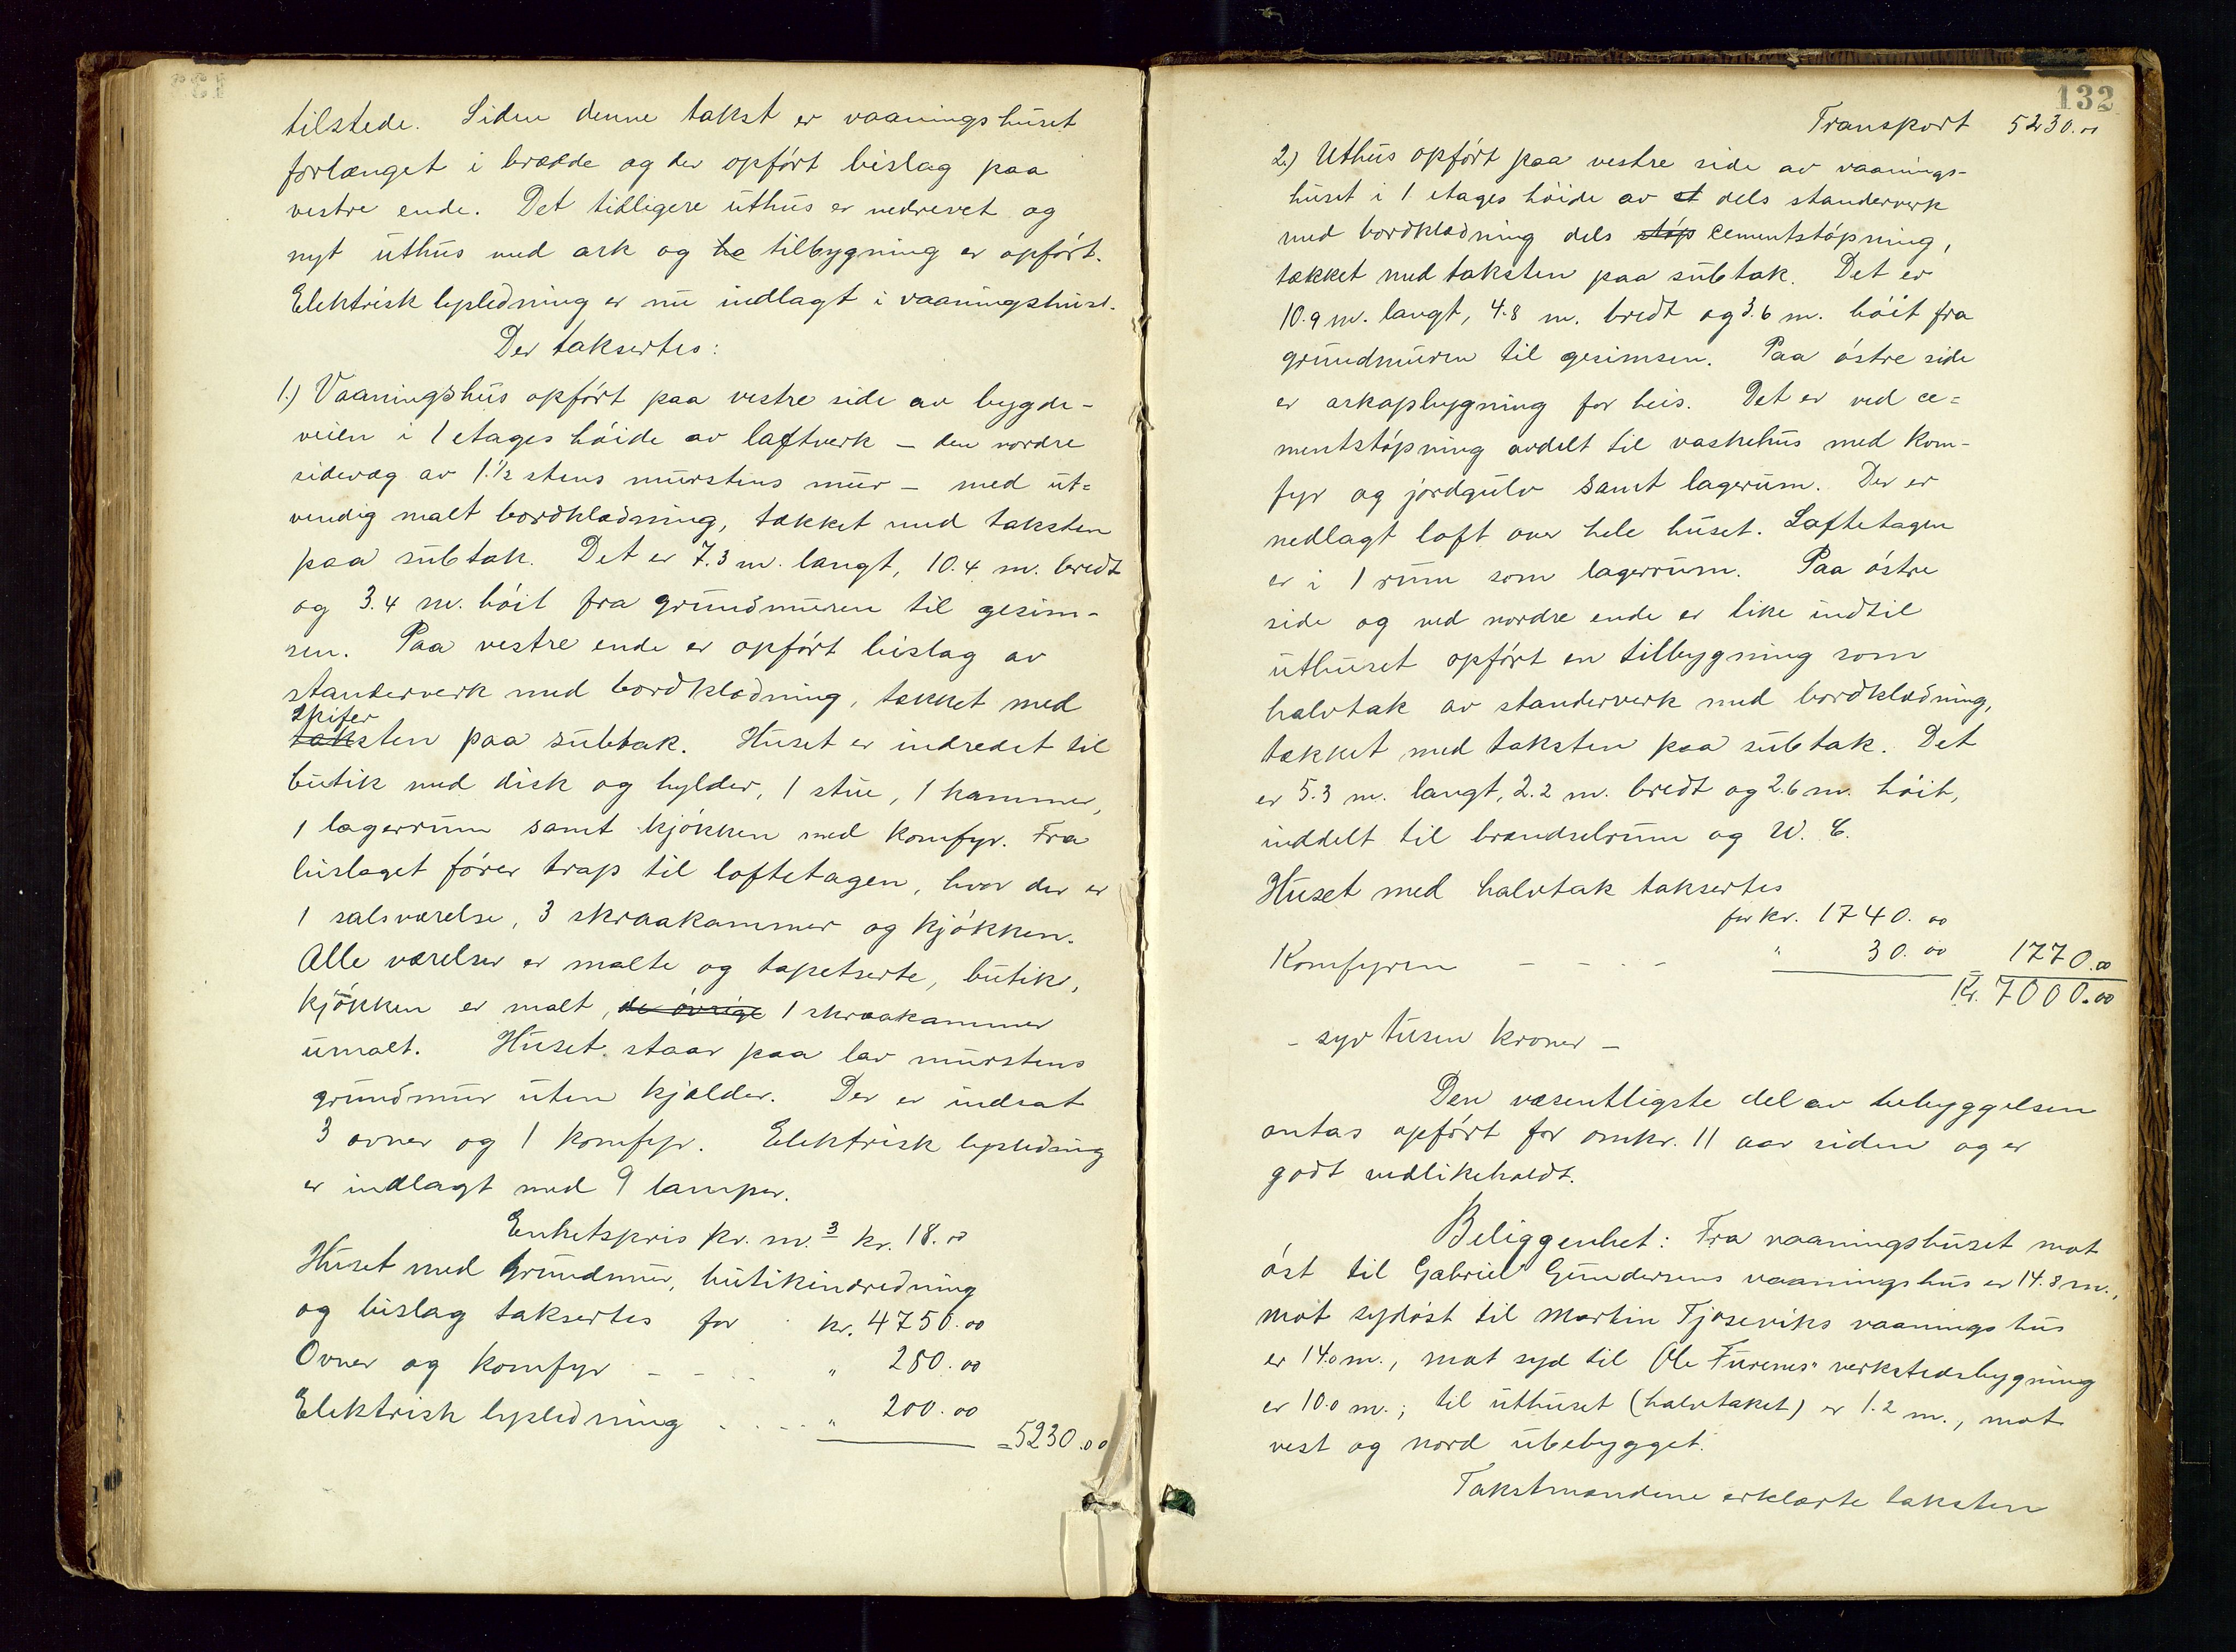 tilstede. Siden denne takst er vaaningshuset
forlænget i bredde og der opført bislag paa
vestre ende. Det tidligere uthus er nedrevet og
nyt uthus med ark og ha tilbygning er opført.
Elektrisk lysledning er nu indlagt i vaaningshuset.
Der taksertes:
1.) Vaaningshus opført paa vestre side av bygde-
veien i 1 etages høide av laftverk – den nordre
sidevæg av 1.½ stens murstens mur – med ut=
vendig malt bordklædning, tækket med taksten
paa subtak. Det er 7.3 m. langt, 10.4 m. bredt
og 3.4 m. høit fra grundmuren til gesim-
sen. Paa vestre ende er opført bislag av
standerverk med bordklædning, tækket med
skifer
taksten paa subtak. Huset er indredet til
butik med disk og hylder, 1 stue, 1 kammer,
1 lagerrum samt kjøkken med komfyr. Fra
bislaget fører trap til loftetagen, hvor der er
1 salsværelse, 3 skraakammer og kjøkken.
Alle værelser er malte og tapetserte, butik,
kjøkken er malt, de øvrige 1 skraakammer
umalt. Huset staar paa lav murstens
grundmur uten kjælder. Der er indsat
3 ovner og 1 komfyr. Elektrisk lysledning
er indlagt med 9 lamper.
Enhetspris pr. m.3 kr. 18.00
Huset med grundmur, butikindredning
og bislag taksertes for kr. 4750.00
Ovner og komfyr - - - - " 280.00
Elektrisk lysledning - - - - " 200.00
=5230.00
132
Transport 5230.00
2.) Uthus opført paa vestre side av vaanings-
huset i 1 etages høide av st dels standerverk
med bordklædning dels støp cementstøpning,
tækket med taksten paa subtak. Det er
10.9 m. langt, 4.8 m. bredt og 3.6 m. høit fra
grundmuren til gesimsen. Paa østre side
er arkopbygning for heis. Det er ved ce=
mentstøpning avdelt til vaskehus med kom-
fyr og jordgulv samt lagerum. Der er
nedlagt loft over hele huset. Loftetagen
er i 1 rum som lagerrum. Paa østre
side og ved nordre ende er like indtil
uthuset opført en tilbygning som
halvtak av standerverk med bordklædning,
tækket med taksten paa subtak. Det
er 5.3 m. langt, 2.2 m. bredt og 2.6 m. høit,
inddelt til brændselrum og W. C.
Huset med halvtak taksertes
for kr. 1740.00
Komfyren - - - - " 30.00 1770.00
Kr. 7000.00
- syv tusen kroner -
Den væsentligste del av bebyggelsen
antas opført for omkr. 11 aar siden og er
godt vedlikeholdt.
Beliggenhet: Fra vaaningshuset mot
øst til Gabriel Gundersens vaaningshus er 14.8 m.,
mot sydøst til Martin Tjøseviks vaaningshus
er 14.0 m., mot syd til Ole Furenes' verkstedsbygning
er 10.0 m.; til uthuset (halvtaket) er 1.2 m., mot
vest og nord ubebygget.
Takstmændene erklærte taksten